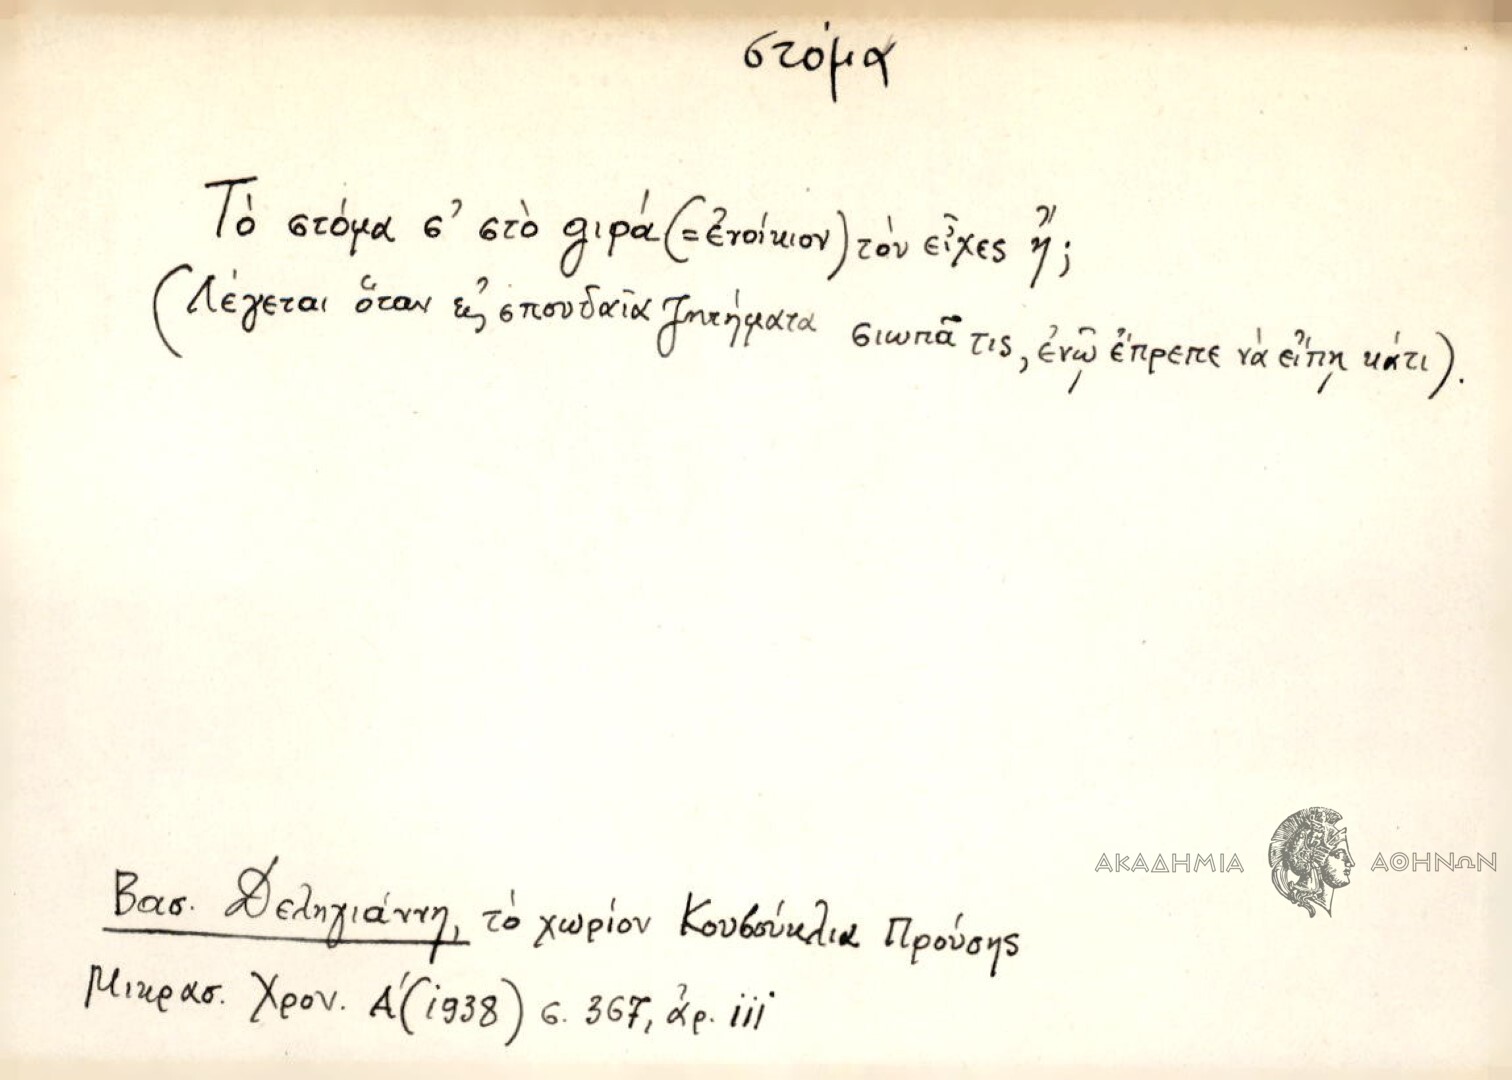 στόμα
Τὸ στόμα σ' στὸ γιρά (= ἐνοίκιον) τὸν εἶχες ἤ;
(Λέγεται ὅταν εἰς σπουδαῖα ζητήματα σιωπᾶ τις, ἐνῷ ἔπρεπε νὰ εἴπῃ κάτι).
ΑΚΑΔΗΜΙΑ ΑΘΗΝΩΝ
Βασ. Δεληγιάννη, τὸ χωρίον Κουβούκλια Προύσης
Μικρασ. Χρον. Α' (1938) σ. 367, ἀρ. 111